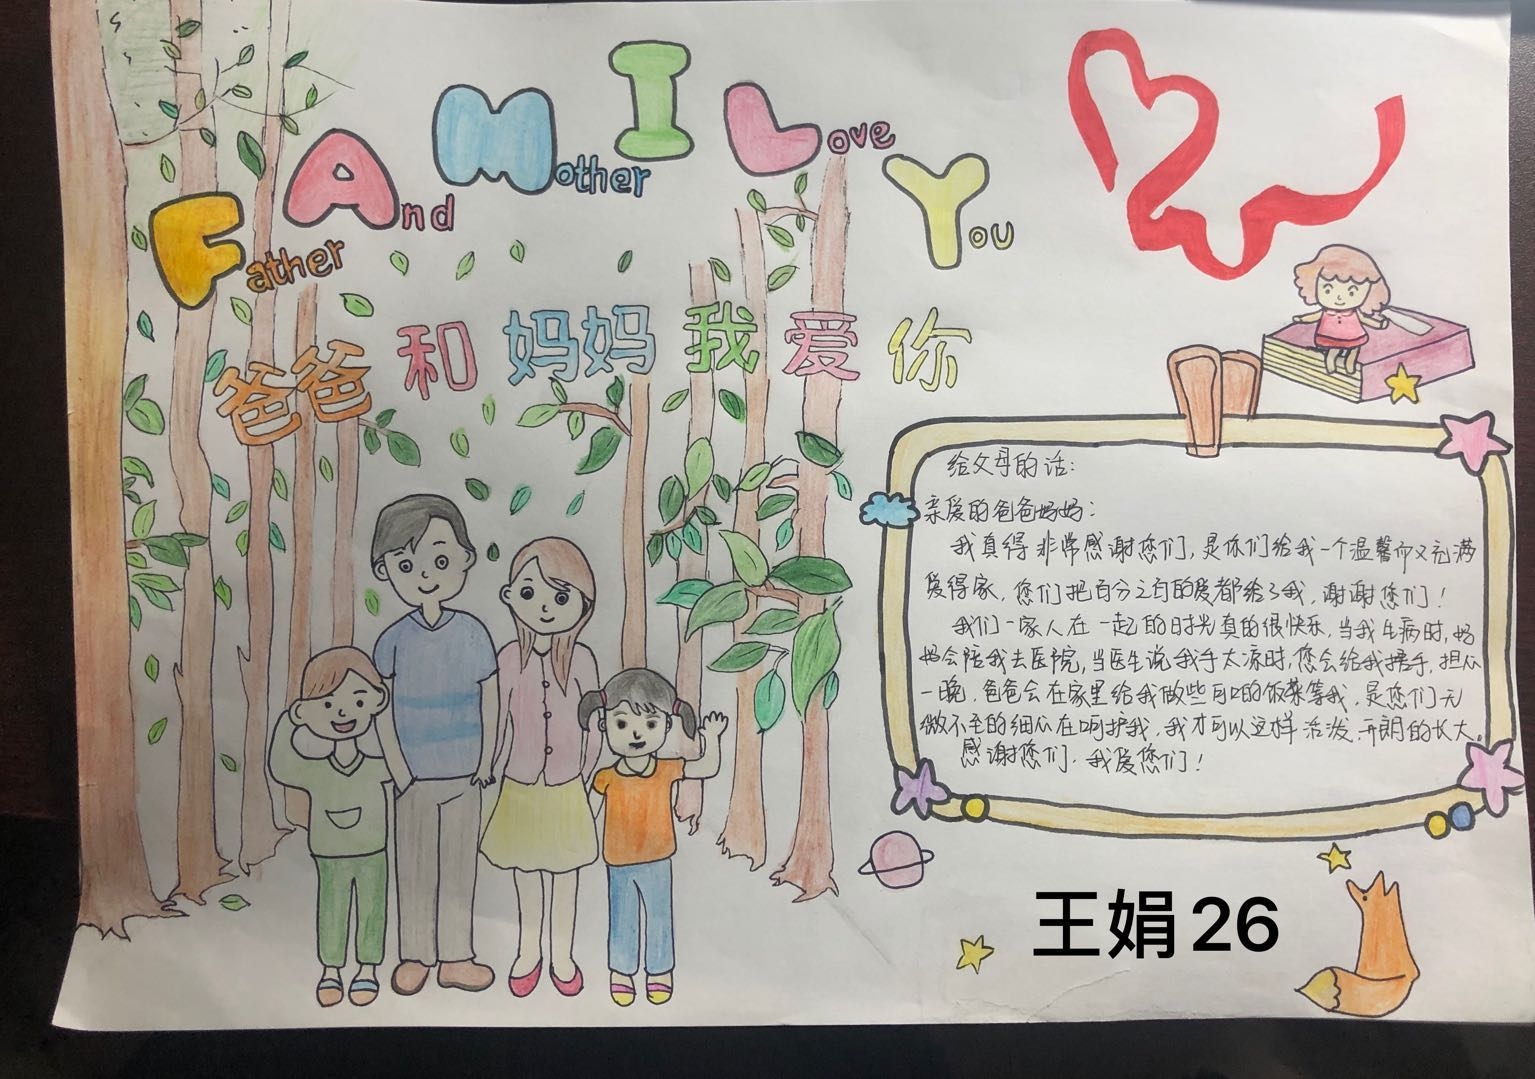 FAMILY
Father And Mother I Love You
爸爸和妈妈我爱你
给父母的话:
亲爱的爸爸妈妈:
我真得非常感谢您们,是你们给我一个温馨而又充满
爱得家,您们把百分之百的爱都给了我,谢谢您们!
我们一家人在一起的时光真的很快乐,当我生病时,妈
妈会陪我去医院,当医生说我手太凉时,您会给我捂手,担心
一晚,爸爸会在家里给我做些可口的饭菜等我,是您们无
微不至的细心在呵护我,我才可以这样活泼、开朗的长大。
感谢您们,我爱您们!
王娟26